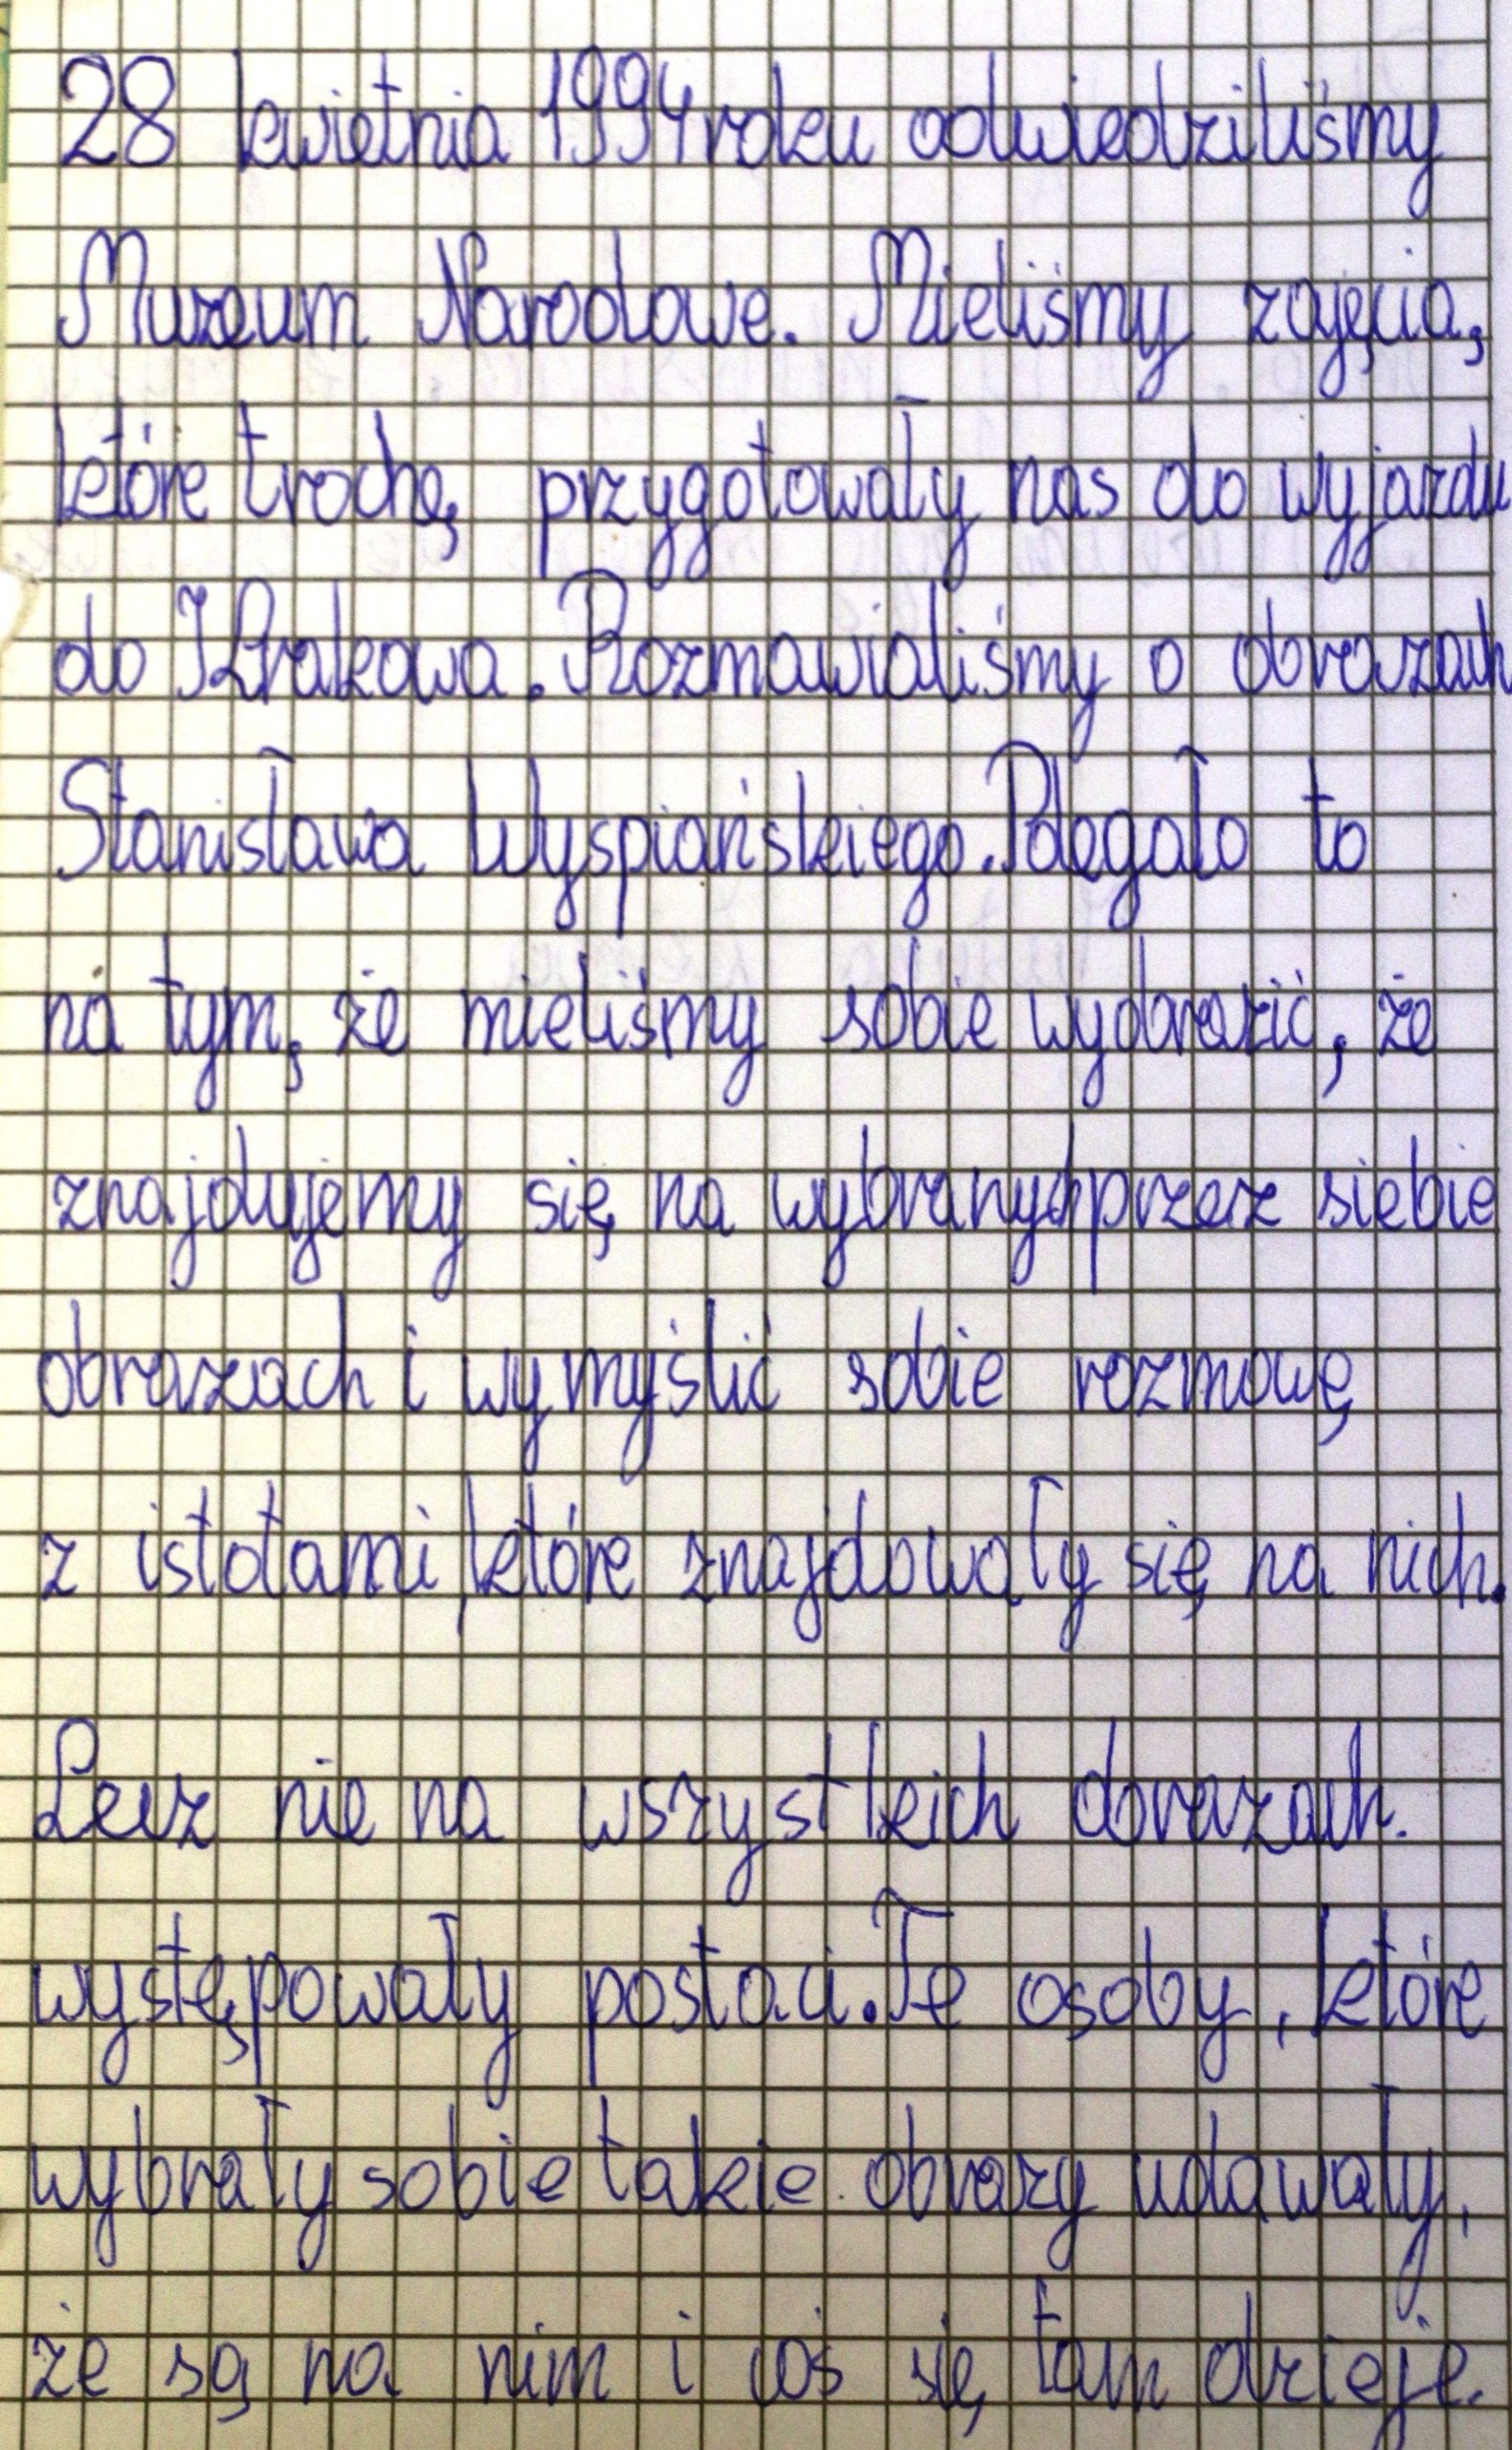 28 kwietnia 1994 roku odwiedziliśmy
Muzeum Narodowe. Mieliśmy zajęcia,
które trochę przygotowały nas do wyjazdu
do Krakowa. Rozmawialiśmy o obrazach
Stanisława Wyspiańskiego. Polegało to
na tym, że mieliśmy sobie wyobrazić, że
znajdujemy się na wybranych przez siebie
obrazach i wymyślić sobie rozmowę
z istotami, które znajdowały się na nich.
Lecz nie na wszystkich obrazach.
występowały postaci. Te osoby, które
wybrały sobie takie obrazy udawały,
że są na nim i coś się tam dzieje.